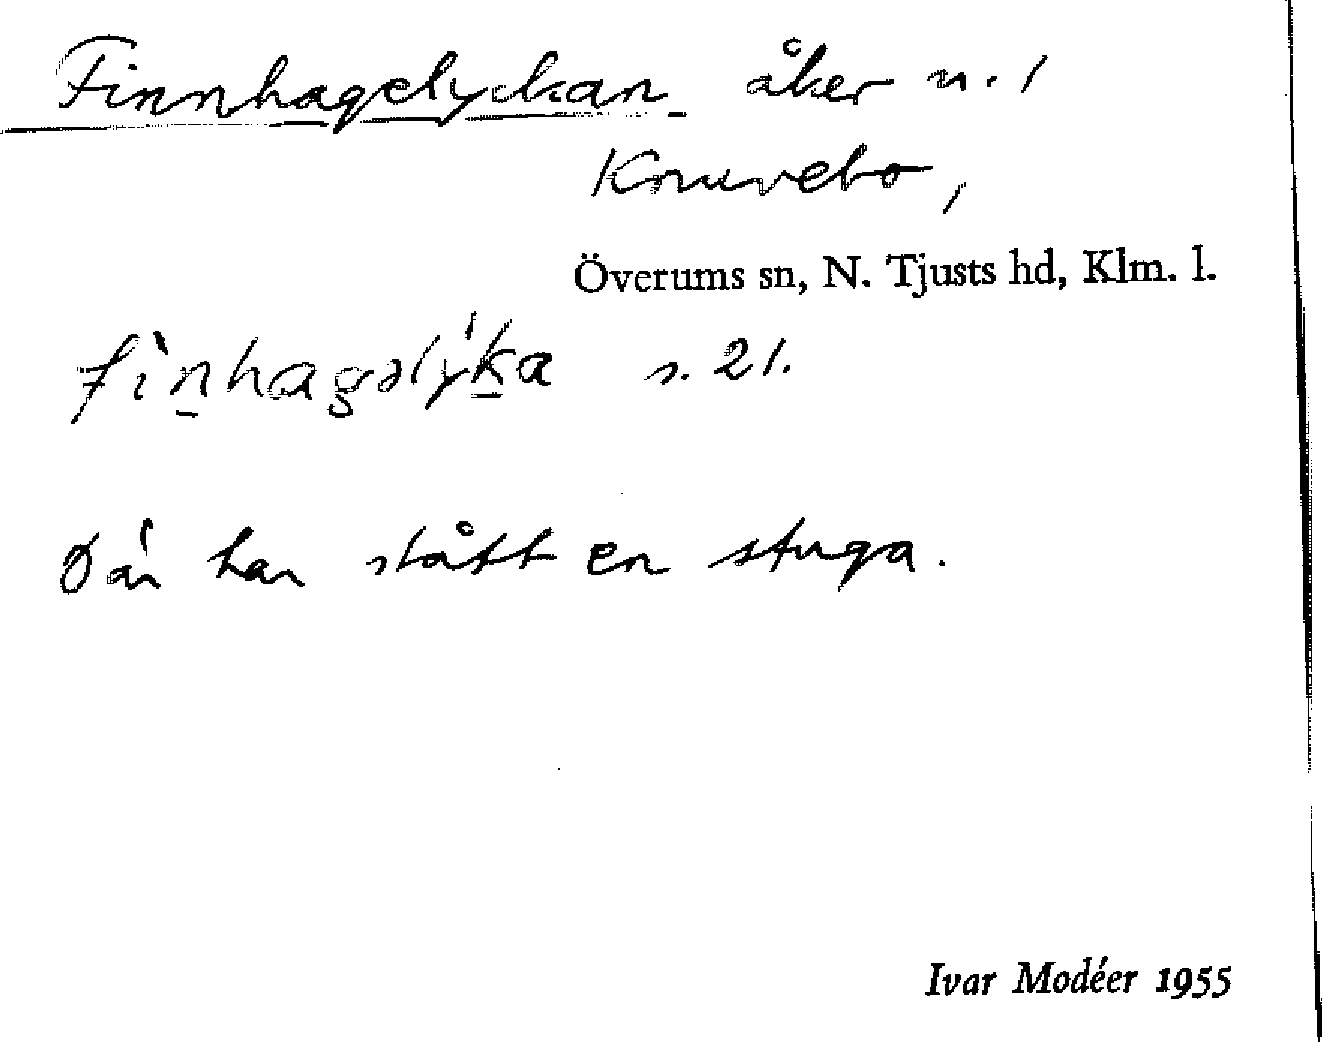 Finnhagelyckan åker n. 1
Knuvebo,
Överums sn, N. Tjusts hd, Klm. l.
fìn̲hagəlý́k̲a s. 21.
Där har stått en stuga.
Ivar Modéer 1955